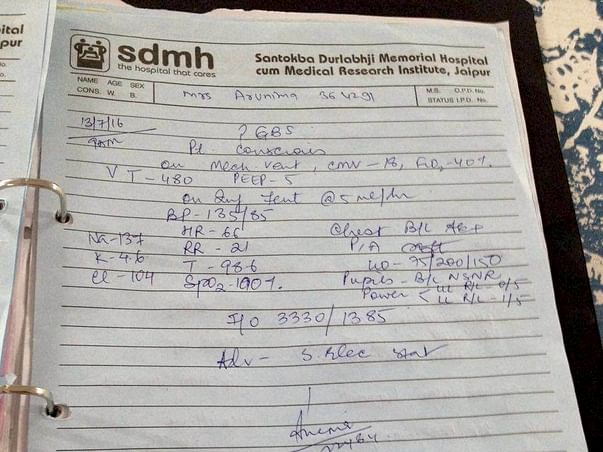 sdmh
the hospital that cares
Santokba Durlabhji Memorial Hospital
cum Medical Research Institute, Jaipur
NAME AGE SEX
CONS. W. B.
Mrs Arunima 364291
M.S. O.P.D. No.
STATUS I.P.D. No.
13/7/16
? GBS
Pt. conscious
on Mech vent, CMV-18, FiO2-40%
VT-480 PEEP-5
on Inj Fent @ 5 ml/hr
BP-135/85
HR-66 Chest B/L AE+
Na-137 RR-21 P/A soft
K-4.6 T-98.6 UO-75/200/150
Cl-104 SpO2-100% Pupils-B/L NSNR
Power < UL R/L-0/5
LL R/L-1/5
I/O 3330/1385
Adv- S. Elec stat